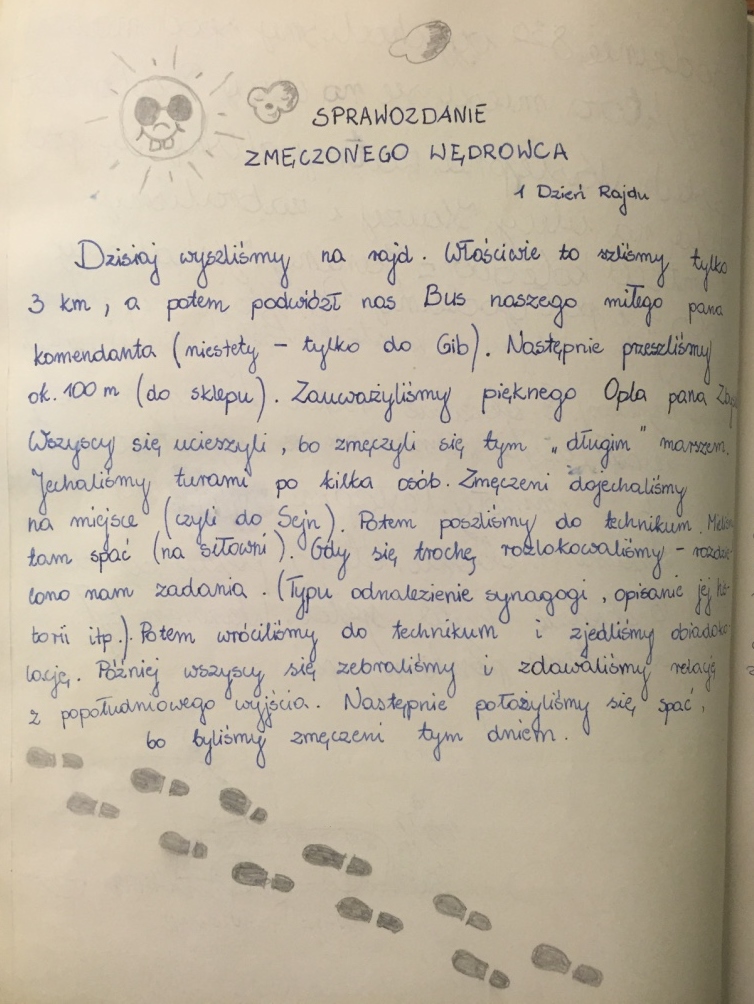 SPRAWOZDANIE
ZMĘCZONEGO WĘDROWCA
1 Dzień Rajdu
Dzisiaj wyszliśmy na rajd. Właściwie to szliśmy tylko
3 km, a potem podwiózł nas Bus naszego miłego pana
komendanta (niestety - tylko do Gib). Następnie przeszliśmy
ok. 100 m (do sklepu). Zauważyliśmy pięknego Opla pana
Wszyscy się ucieszyli, bo zmęczyli się tym „długim" marszem.
Jechaliśmy turami po kilka osób. Zmęczeni dojechaliśmy
na miejsce (czyli do Sejn). Potem poszliśmy do technikum.
tam spać (na siłowni). Gdy się trochę rozlokowaliśmy - rozdzie-
lono nam zadania. (Typu odnalezienie synagogi, opisanie jej his-
torii itp.). Potem wróciliśmy do technikum i zjedliśmy obiadoko-
lację. Później wszyscy się zebraliśmy i zdawaliśmy relację
z popołudniowego wyjścia. Następnie położyliśmy się spać,
bo byliśmy zmęczeni tym dniem.